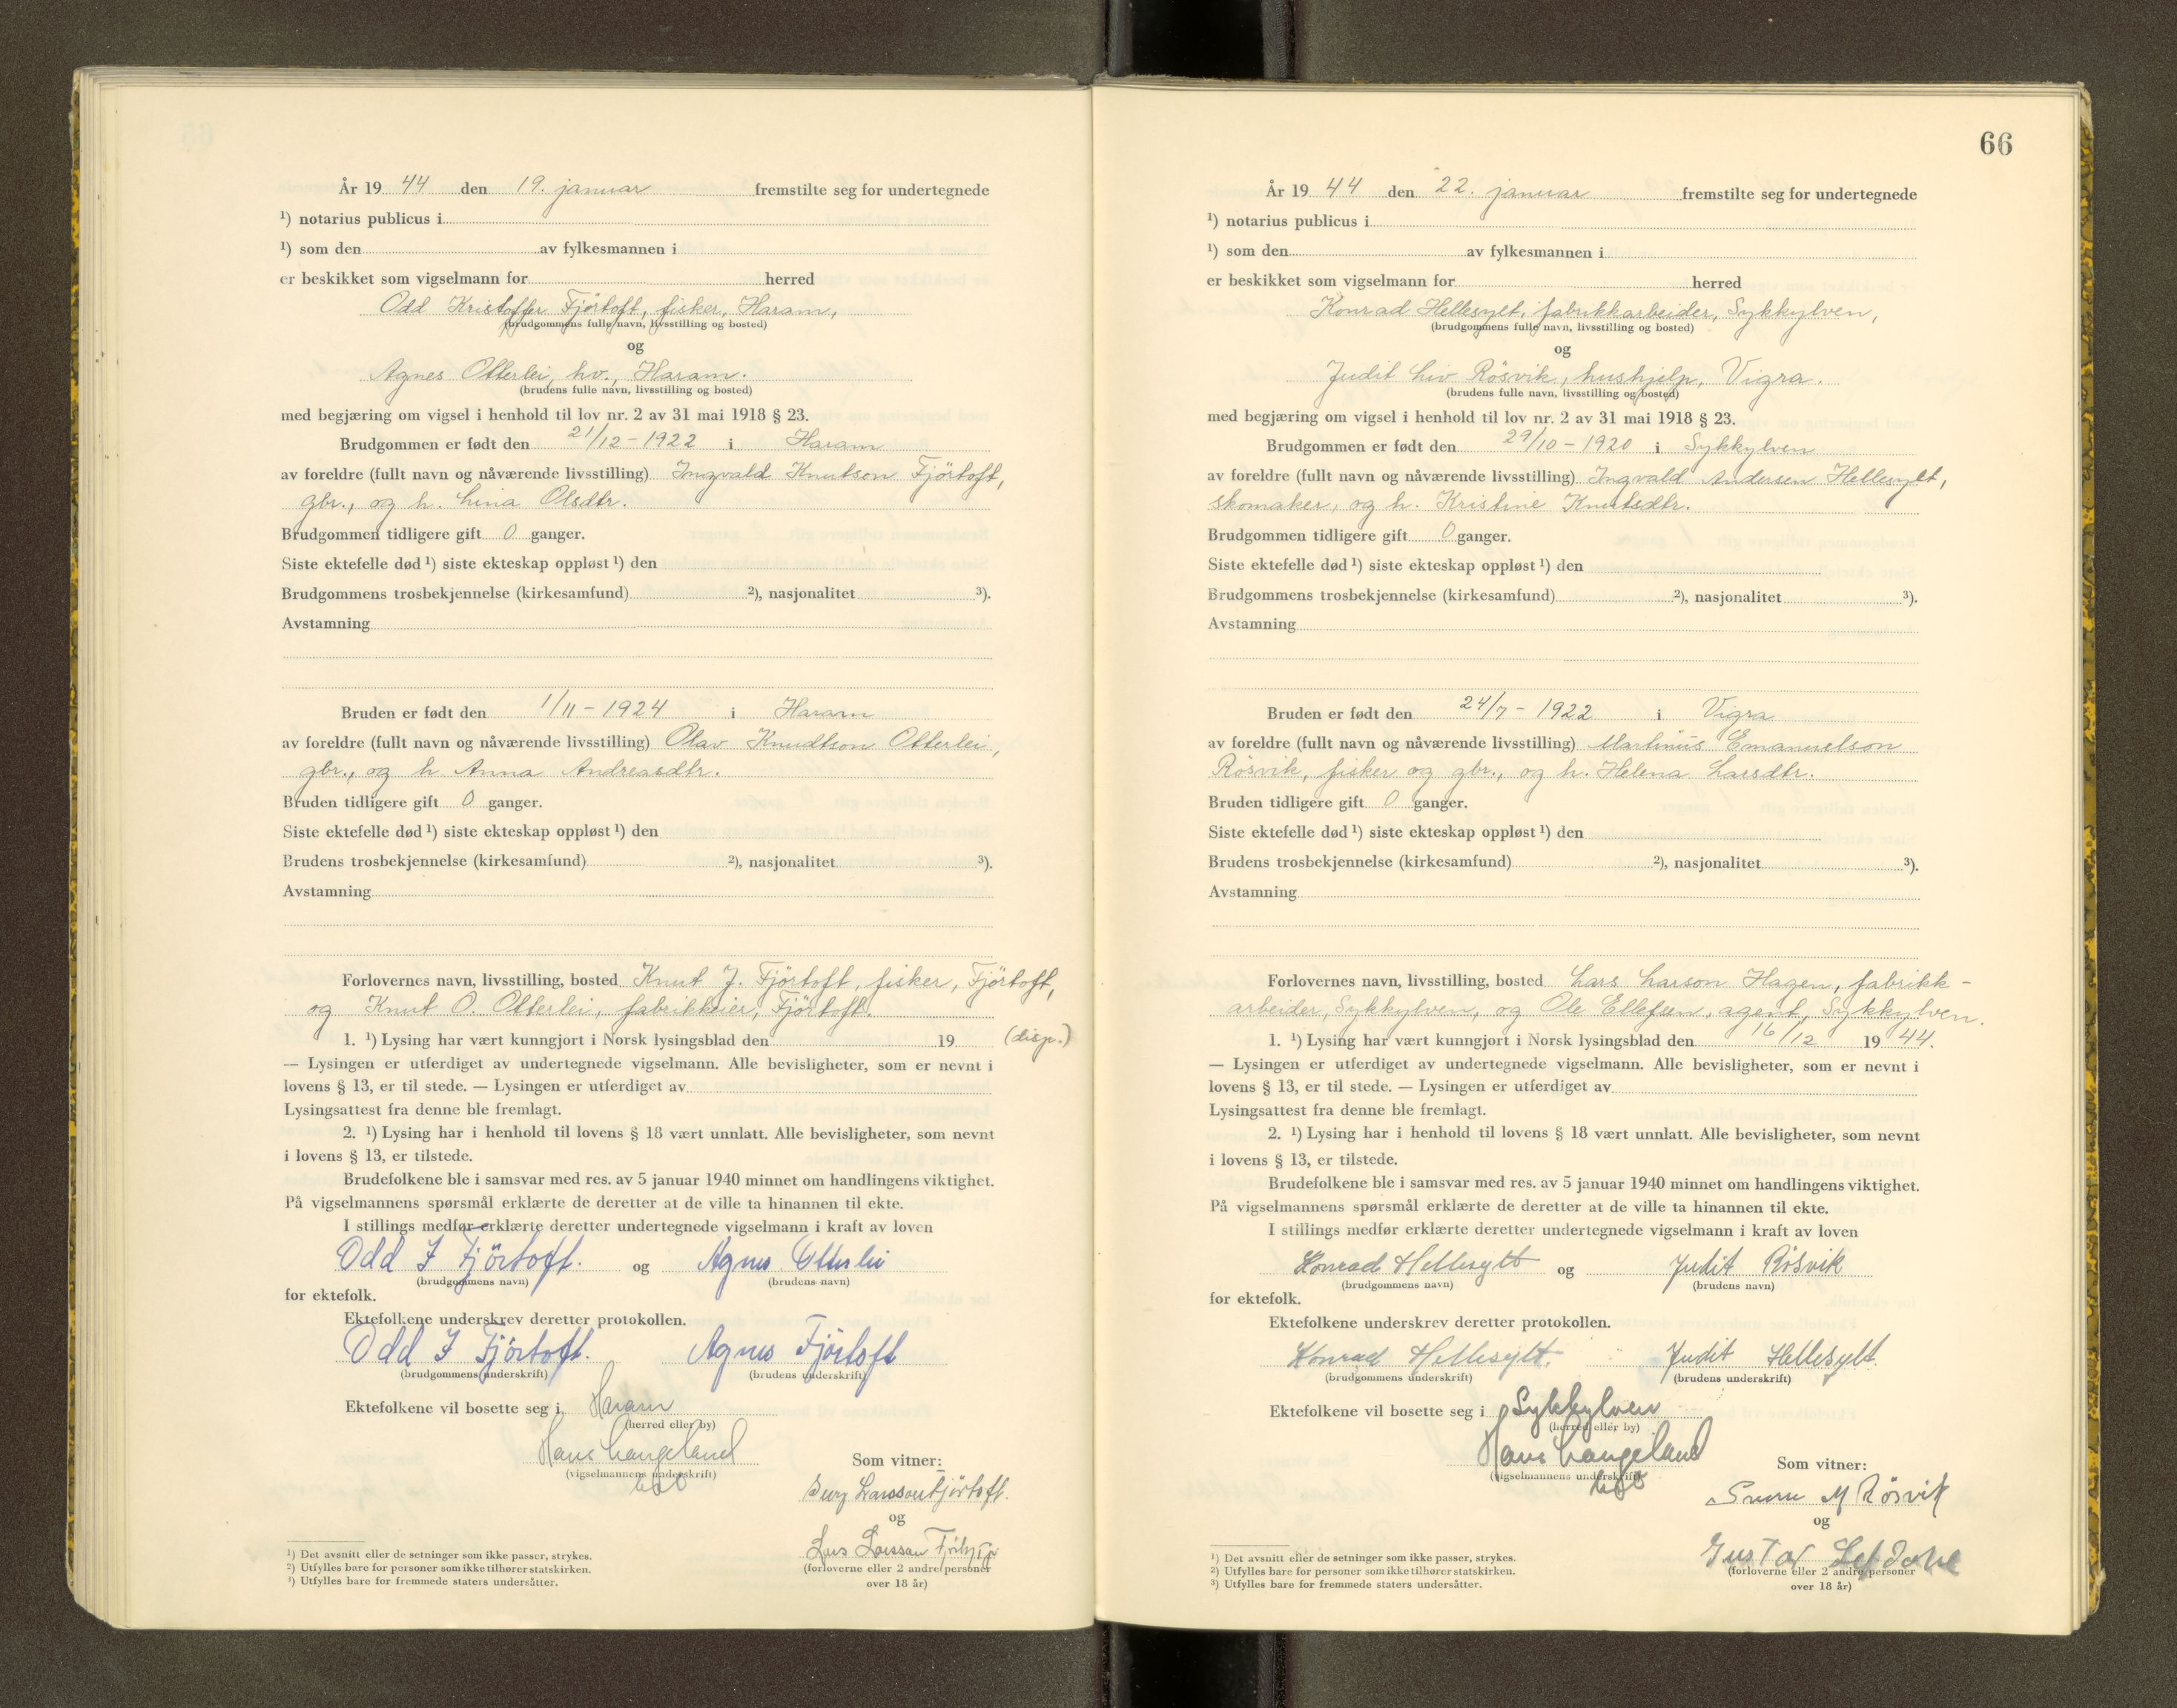 År 19 44 den 19. januar fremstilte seg for undertegnede
¹) notarius publicus i
¹) som den av fylkesmannen i
er beskikket som vigselmann for herred
Odd Kristoffer Fjörtoft, fisker, Haram,
(brudgommens fulle navn, livsstilling og bosted)
og
Agnes Otterlei, hv., Haram.
(brudens fulle navn, livsstilling og bosted)
med begjæring om vigsel i henhold til lov nr. 2 av 31 mai 1918 § 23.
Brudgommen er født den 21/12 - 1922 i Haram
av foreldre (fullt navn og nåværende livsstilling) Ingvald Knutson Fjörtoft,
gbr., og h. Lina Olsdtr.
Brudgommen tidligere gift 0 ganger.
Siste ektefelle død ¹) siste ekteskap oppløst ¹) den
Brudgommens trosbekjennelse (kirkesamfund) ²), nasjonalitet ³).
Avstamning
Bruden er født den 1/11 - 1924 i Haram
av foreldre (fullt navn og nåværende livsstilling) Olav Knudtson Otterlei,
gbr., og h. Anna Andreasdtr.
Bruden tidligere gift 0 ganger.
Siste ektefelle død ¹) siste ekteskap oppløst ¹) den
Brudens trosbekjennelse (kirkesamfund) ²), nasjonalitet ³).
Avstamning
Forlovernes navn, livsstilling, bosted Knut J. Fjörtoft, fisker, Fjörtoft,
og Knut O. Otterlei, fabrikkeier, Fjörtoft.
1. ¹) Lysing har vært kunngjort i Norsk lysingsblad den 19 (disp.)
— Lysingen er utferdiget av undertegnede vigselmann. Alle bevisligheter, som er nevnt i
lovens § 13, er til stede. — Lysingen er utferdiget av
Lysingsattest fra denne ble fremlagt.
2. ¹) Lysing har i henhold til lovens § 18 vært unnlatt. Alle bevisligheter, som nevnt
i lovens § 13, er tilstede.
Brudefolkene ble i samsvar med res. av 5 januar 1940 minnet om handlingens viktighet.
På vigselmannens spørsmål erklærte de deretter at de ville ta hinannen til ekte.
I stillings medfør erklærte deretter undertegnede vigselmann i kraft av loven
Odd I Fjörtoft. og Agnes Otterlei
(brudgommens navn) (brudens navn)
for ektefolk.
Ektefolkene underskrev deretter protokollen.
Odd I Fjörtoft. Agnes Fjörtoft
(brudgommens underskrift) (brudens underskrift)
Ektefolkene vil bosette seg i Haram
(herred eller by)
Hans Langeland
(vigselmannens underskrift)
Som vitner:
Larsson Fjörtoft.
og
Lars Larsson
(forloverne eller 2 andre personer
over 18 år)
¹) Det avsnitt eller de setninger som ikke passer, strykes.
²) Utfylles bare for personer som ikke tilhører statskirken.
³) Utfylles bare for fremmede staters undersåtter.
66
År 19 44 den 22. januar fremstilte seg for undertegnede
¹) notarius publicus i
¹) som den av fylkesmannen i
er beskikket som vigselmann for herred
Konrad Hellesylt, fabrikkarbeider, Sykkylven,
(brudgommens fulle navn, livsstilling og bosted)
og
Judit Liv Rösvik, hushjelp, Vigra.
(brudens fulle navn, livsstilling og bosted)
med begjæring om vigsel i henhold til lov nr. 2 av 31 mai 1918 § 23.
Brudgommen er født den 29/10 - 1920 i Sykkylven
av foreldre (fullt navn og nåværende livsstilling) Ingvald Andersen Hellesylt,
skomaker, og h. Kristine Knutsdtr.
Brudgommen tidligere gift 0 ganger.
Siste ektefelle død ¹) siste ekteskap oppløst ¹) den
Brudgommens trosbekjennelse (kirkesamfund) ²), nasjonalitet ³).
Avstamning
Bruden er født den 24/7 - 1922 i Vigra
av foreldre (fullt navn og nåværende livsstilling) Martinus Emanuelson
Rösvik, fisker og gbr., og h. Helena Larsdtr.
Bruden tidligere gift 0 ganger.
Siste ektefelle død ¹) siste ekteskap oppløst ¹) den
Brudens trosbekjennelse (kirkesamfund) ²), nasjonalitet ³).
Avstamning
Forlovernes navn, livsstilling, bosted Lars Larson Hagen, fabrikk-
arbeider, Sykkylven, og Ole Ellefsen, agent, Sykkylven.
1. ¹) Lysing har vært kunngjort i Norsk lysingsblad den 16/12 19 44.
— Lysingen er utferdiget av undertegnede vigselmann. Alle bevisligheter, som er nevnt i
lovens § 13, er til stede. — Lysingen er utferdiget av
Lysingsattest fra denne ble fremlagt.
2. ¹) Lysing har i henhold til lovens § 18 vært unnlatt. Alle bevisligheter, som nevnt
i lovens § 13, er tilstede.
Brudefolkene ble i samsvar med res. av 5 januar 1940 minnet om handlingens viktighet.
På vigselmannens spørsmål erklærte de deretter at de ville ta hinannen til ekte.
I stillings medfør erklærte deretter undertegnede vigselmann i kraft av loven
Konrad Hellesylt og Judit Rösvik
(brudgommens navn) (brudens navn)
for ektefolk.
Ektefolkene underskrev deretter protokollen.
Konrad Hellesylt. Judit Hellesylt.
(brudgommens underskrift) (brudens underskrift)
Ektefolkene vil bosette seg i Sykkylven
(herred eller by)
Hans Langeland
(vigselmannens underskrift)
Som vitner:
M Rösvik
og
Gustav
(forloverne eller 2 andre personer
over 18 år)
¹) Det avsnitt eller de setninger som ikke passer, strykes.
²) Utfylles bare for personer som ikke tilhører statskirken.
³) Utfylles bare for fremmede staters undersåtter.